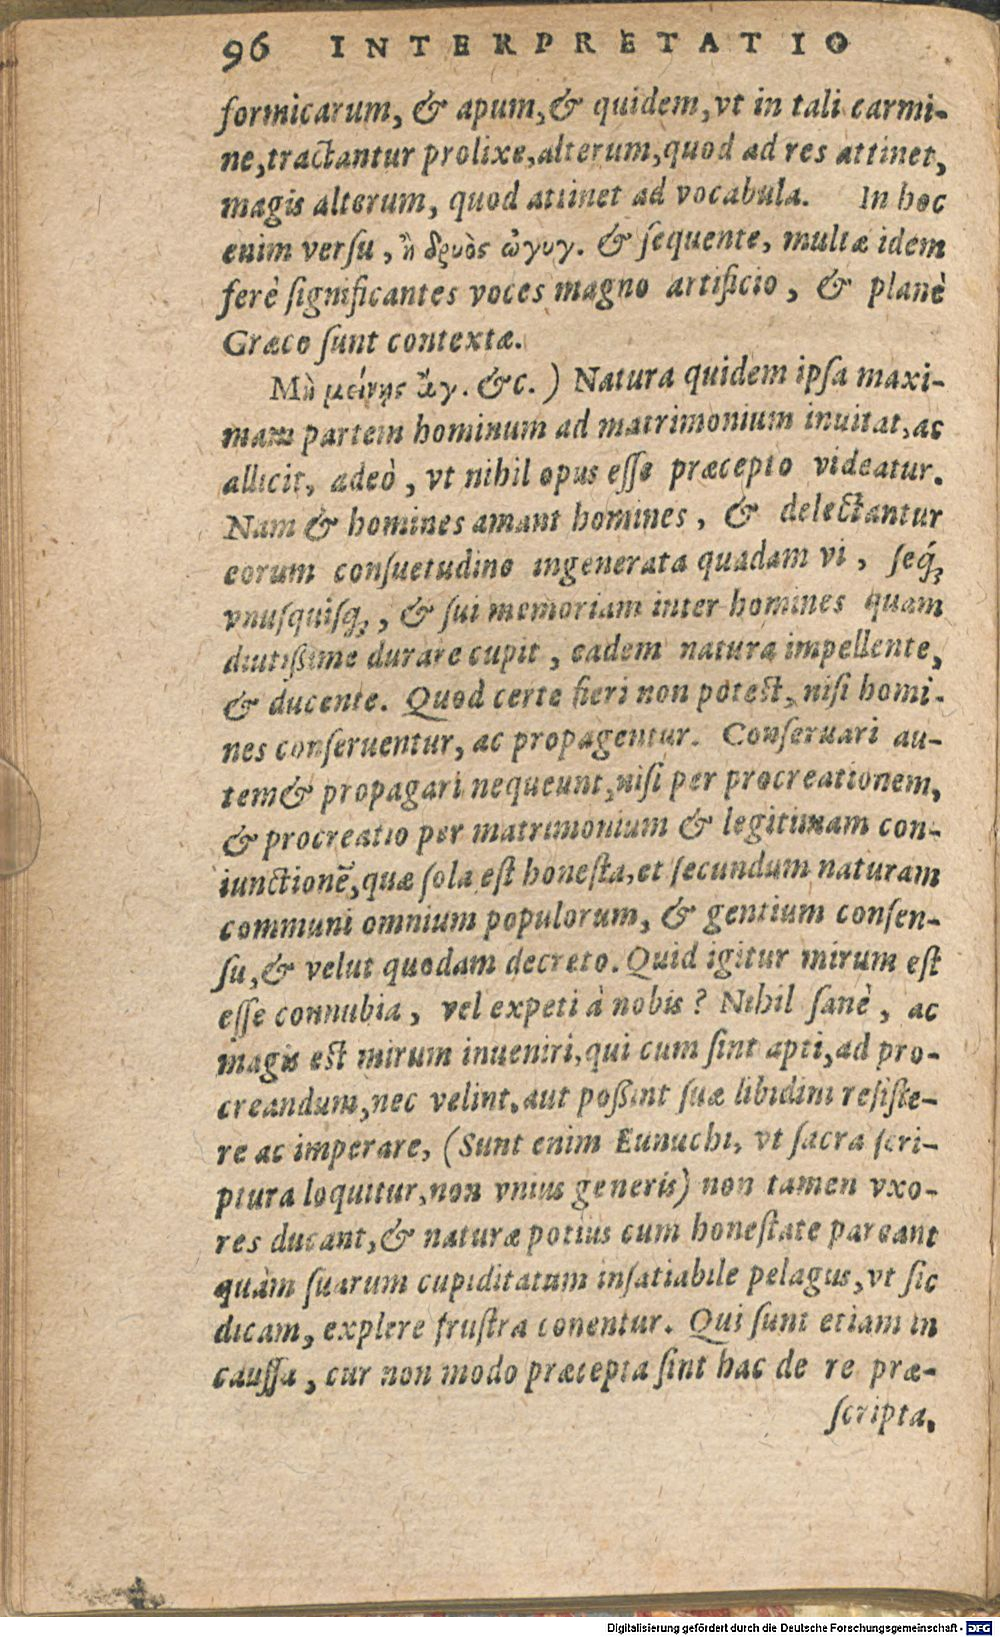 96 INTERPRETATIO
formicarum, & apum, & quidem, vt in tali carmi-
ne, tractantur prolixe, alterum, quod ad res attinet,
magis alterum, quod attinet ad vocabula. In hoc
enim versu, ἢ δρυὸς ὠγυγ. & ſequente, multæ idem
ferè ſignificantes voces magno artificio, & planè
Græco ſunt contextæ.
Μὴ μείνῃς ἄγ. &c.) Natura quidem ipſa maxi-
mam partem hominum ad matrimonium inuitat, ac
allicit, adeò, vt nihil opus eſſe præcepto videatur.
Nam & homines amant homines, & delectantur
eorum conſuetudine ingenerata quadam vi, ſeq́;
vnuſquiſq;, & ſui memoriam inter homines quam
diutißime durare cupit, eadem natura impellente,
& ducente. Quod certe fieri non poteſt, niſi homi-
nes conſeruentur, ac propagentur. Conſeruari au-
tem & propagari nequeunt, niſi per procreationem,
& procreatio per matrimonium & legitimam con-
iunctionẽ, quæ ſola eſt honeſta, et ſecundum naturam
communi omnium populorum, & gentium conſen-
ſu, & velut quodam decreto. Quid igitur mirum eſt
eſſe connubia, vel expeti à nobis? Nihil ſanè, ac
magis eſt mirum inueniri, qui cum ſint apti, ad pro-
creandum, nec velint, aut poßint ſuæ libidini reſiſte-
re ac imperare, (Sunt enim Eunuchi, vt ſacra ſcri-
ptura loquitur, non vnius generis) non tamen vxo-
res ducant, & naturæ potius cum honeſtate pareant
quàm ſuarum cupiditatum inſatiabile pelagus, vt ſic
dicam, explere fruſtra conentur. Qui ſunt etiam in
cauſſa, cur non modo præcepta ſint hac de re præ-
ſcripta,
Digitalisierung gefördert durch die Deutsche Forschungsgemeinschaft - DFG